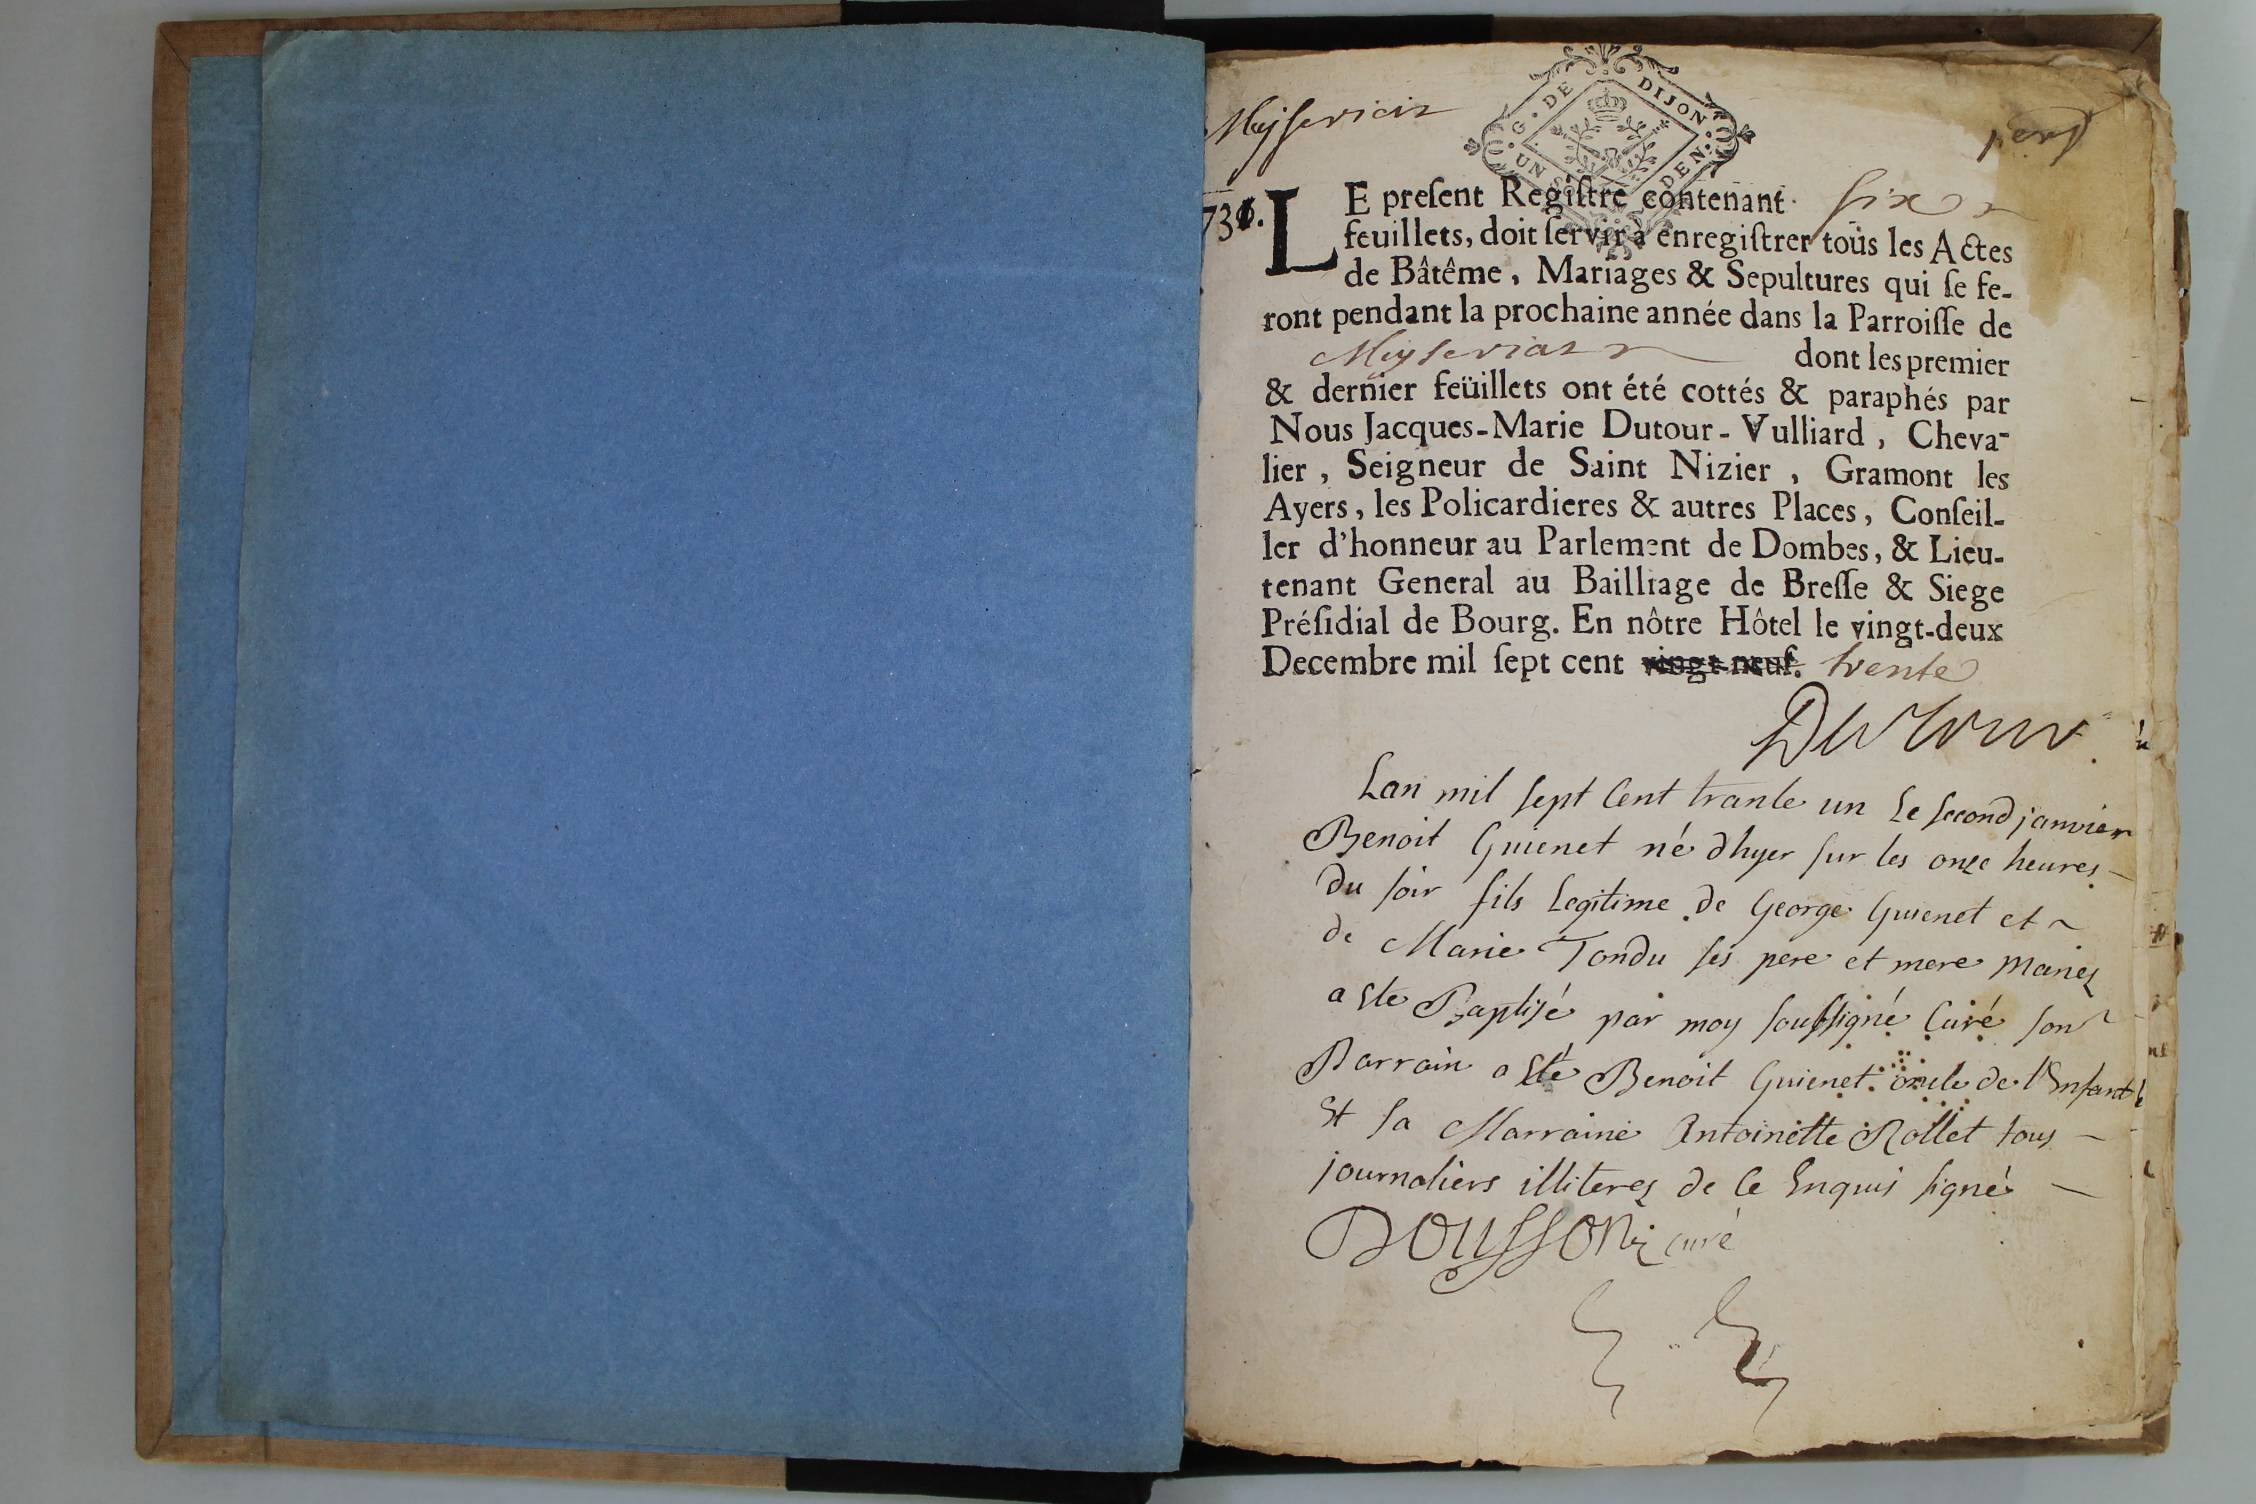 Meyseriat
G. DE DIJON
UN SOL DEN.
1er
731.
LE preſent Regiſtre contenant six
feuillets, doit ſervir à enregiſtrer toüs les Actes
de Bâtême, Mariages & Sepultures qui ſe fe-
ront pendant la prochaine année dans la Parroiſſe de
Meyseriat dont les premier
& dernier feüillets ont été cottés & paraphés par
Nous Jacques-Marie Dutour-Vulliard, Cheva-
lier, Seigneur de Saint Nizier, Gramont les
Ayers, les Policardieres & autres Places, Conſeil-
ler d'honneur au Parlement de Dombes, & Lieu-
tenant General au Bailliage de Breſſe & Siege
Préſidial de Bourg. En nôtre Hôtel le vingt-deux
Decembre mil ſept cent vingt-neuf. trente
Dutour
Lan mil sept Cent trante un Le second janvier
Benoit Guienet né dhyer sur les onze heures
du soir fils Legitime de George Guienet et
de Marie Tondu ses pere et mere mariez
a ete Baptisé par moy soussigné Curé son
Parrain a ete Benoit Guienet oncle de l'Enfant
Et sa Marraine Antoinette Rollet tous
journaliers illiterez de Ce Enquis signé
Dousson curé